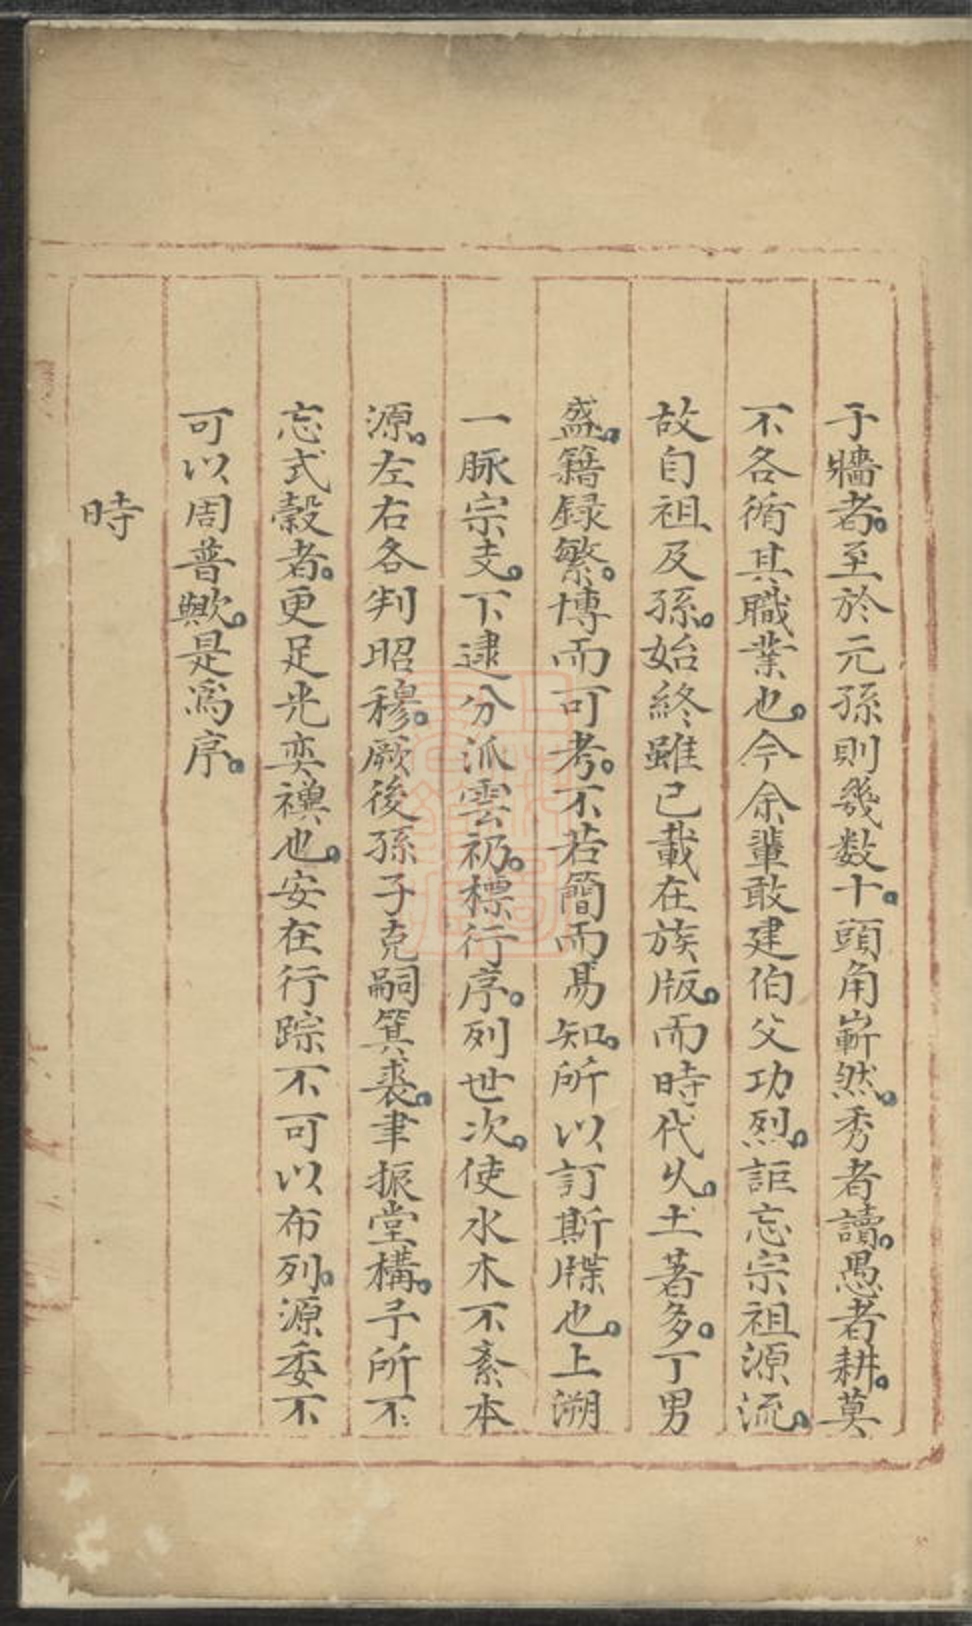 于牆者。至於元孫則幾数十。頭角嶄然。秀者讀。愚者耕。莫
不各循其職業也。今余輩敢建伯父功烈。詎忘宗祖源流。
故自祖及孫。始終雖已載在族版。而時代久。土著多。丁男
盛。籍録繁。博而可考。不若簡而易知。所以訂斯牒也。上溯
一脉宗支。下逮分派雲礽。標行序。列世次。使水木不紊本
源。左右各判昭穆。厥後孫子克嗣箕裘。聿振堂構。予所不
忘式穀者。更足光奕禩也。安在行踪不可以布列。源委不
可以周普歟。是為序。
時